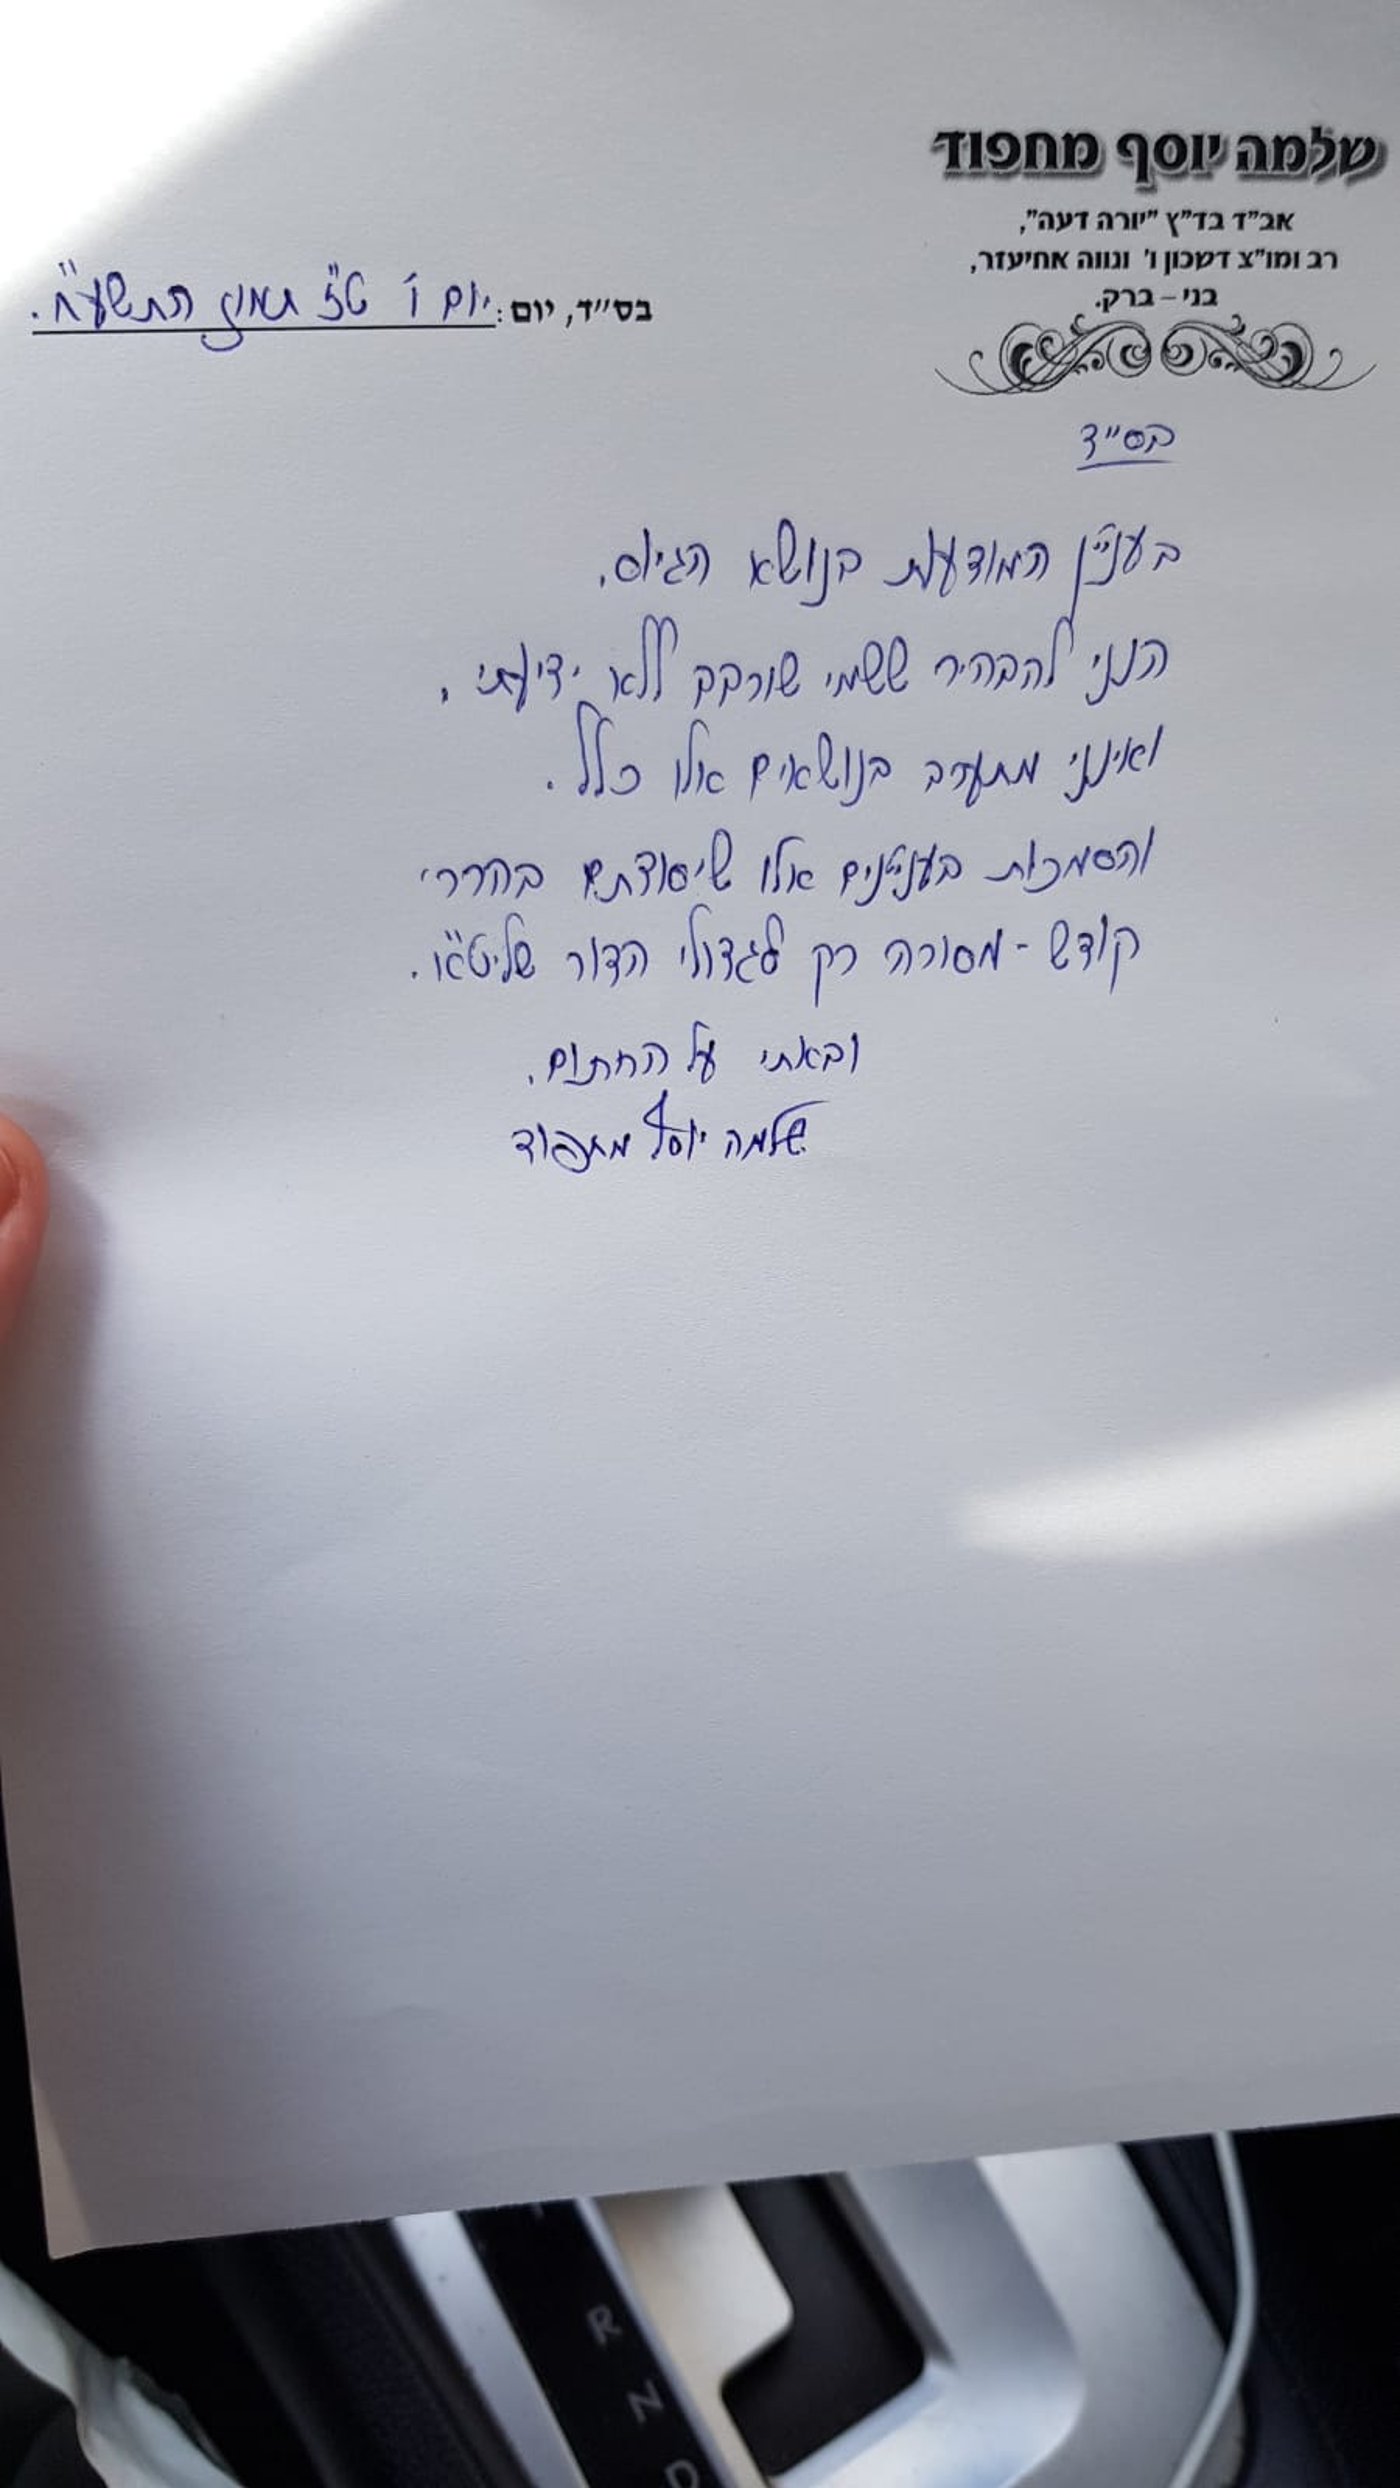 שלמה יוסף מחפוד
אב"ד בד"ץ "יורה דעה",
רב ומו"צ דשכון ו' ונווה אחיעזר,
בני – ברק.
בס"ד, יום: יום ו' ט"ז תמוז התשע"ח.
בס"ד
בעניין המודעות בנושא הגיוס.
הנני להבהיר ששמי שורבב ללא ידיעתי.
ואינני מתערב בנושאים אלו כלל.
והסמכות בעניינים אלו שיסודתם בהררי
קודש - מסורה רק לגדולי הדור שליט"א.
ובאתי על החתום.
שלמה יוסף מחפוד
R
N
D